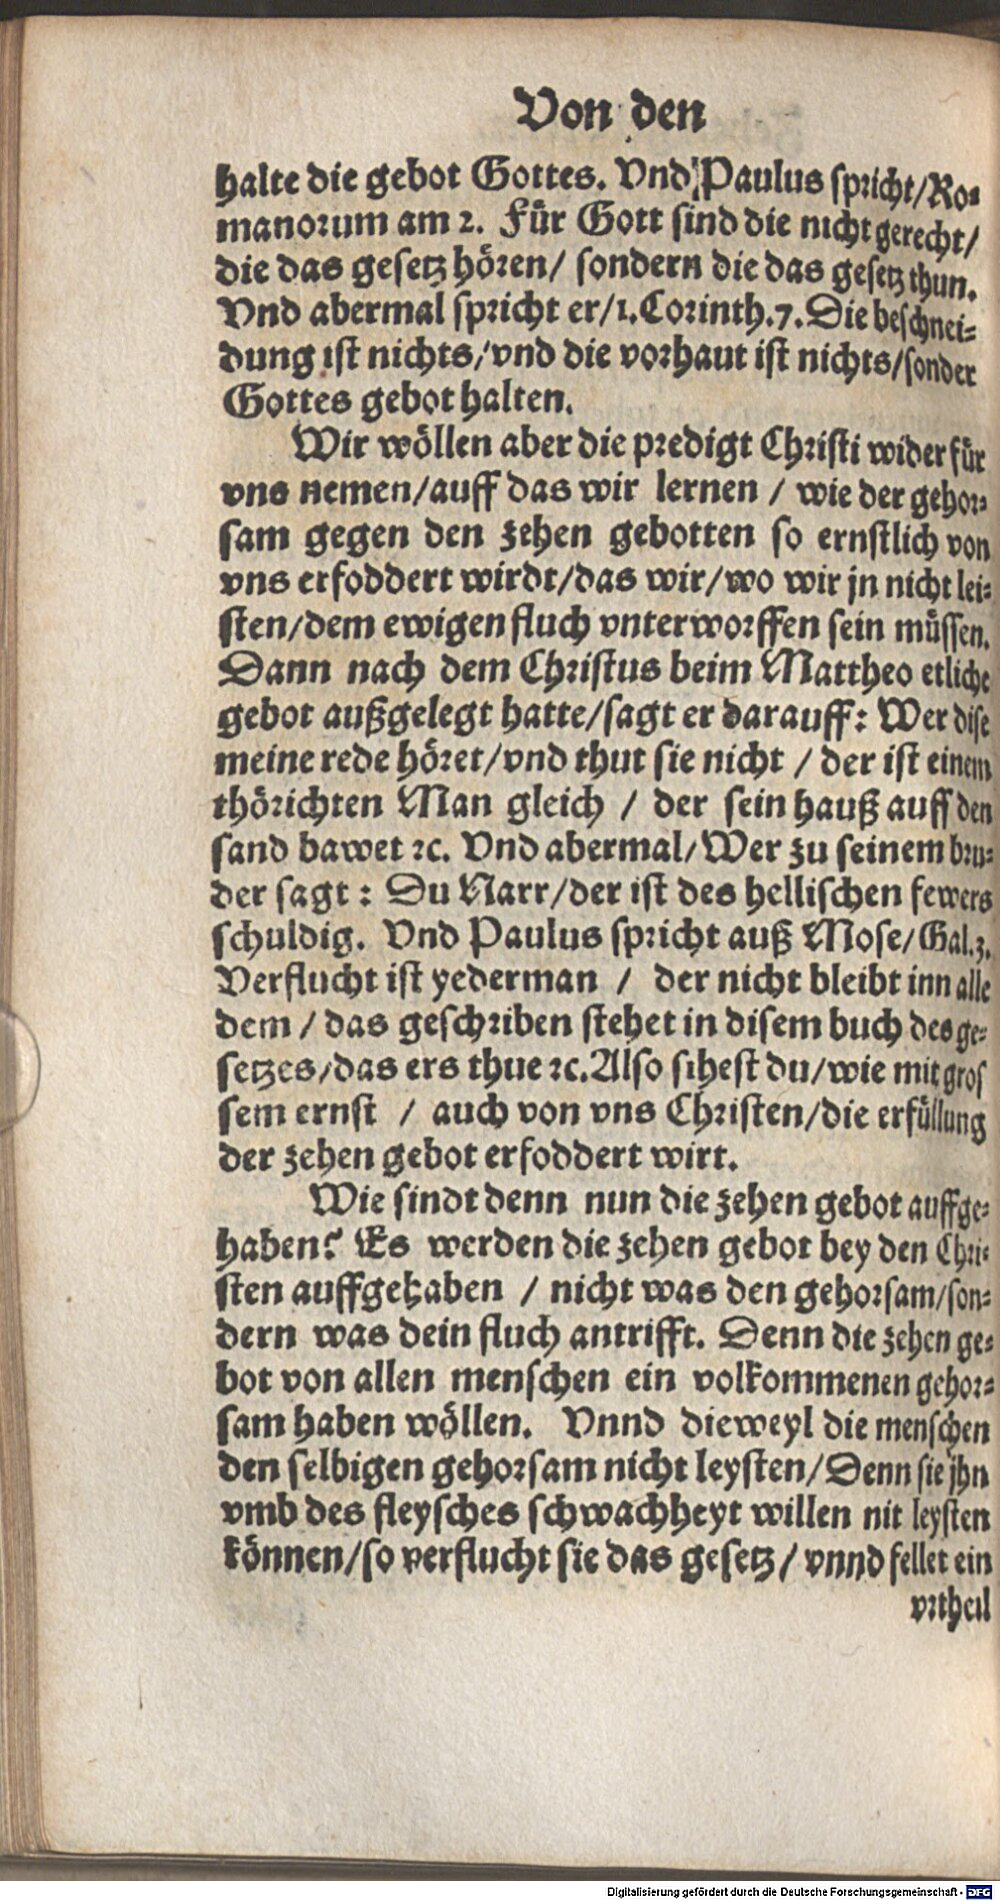 Von den
halte die gebot Gottes. Vnd Paulus spricht/Ro-
manorum am 2. Für Gott sind die nicht gerecht/
die das gesetz hören/ sondern die das gesetz thun.
Vnd abermal spricht er/1. Corinth.7. Die beschnei-
dung ist nichts/vnd die vorhaut ist nichts/sonder
Gottes gebot halten.
Wir wöllen aber die predigt Christi wider für
vns nemen/auff das wir lernen / wie der gehor-
sam gegen den zehen gebotten so ernstlich von
vns erfoddert wirdt/das wir/wo wir jn nicht lei-
sten/dem ewigen fluch vnterworffen sein müssen.
Dann nach dem Christus beim Mattheo etliche
gebot außgelegt hatte/sagt er darauff: Wer dise
meine rede höret/vnd thut sie nicht / der ist einem
thörichten Man gleich / der sein hauß auff den
sand bawet ꝛc. Vnd abermal/Wer zu seinem bru-
der sagt: Du Narr/der ist des hellischen fewers
schuldig. Vnd Paulus spricht auß Mose/Gal.3.
Verflucht ist yederman / der nicht bleibt inn alle
dem / das geschriben stehet in disem buch des ge-
setzes/das ers thue ꝛc. Also sihest du/wie mit gros
sem ernst / auch von vns Christen/die erfüllung
der zehen gebot erfoddert wirt.
Wie sindt denn nun die zehen gebot auffge-
haben? Es werden die zehen gebot bey den Chri-
sten auffgehaben / nicht was den gehorsam/son-
dern was dein fluch antrifft. Denn die zehen ge-
bot von allen menschen ein volkommenen gehor-
sam haben wöllen. Vnnd dieweyl die menschen
den selbigen gehorsam nicht leysten/Denn sie jhn
vmb des fleysches schwachheyt willen nit leysten
können/so verflucht sie das gesetz/ vnnd fellet ein
vrtheil
Digitalisierung gefördert durch die Deutsche Forschungsgemeinschaft - DFG